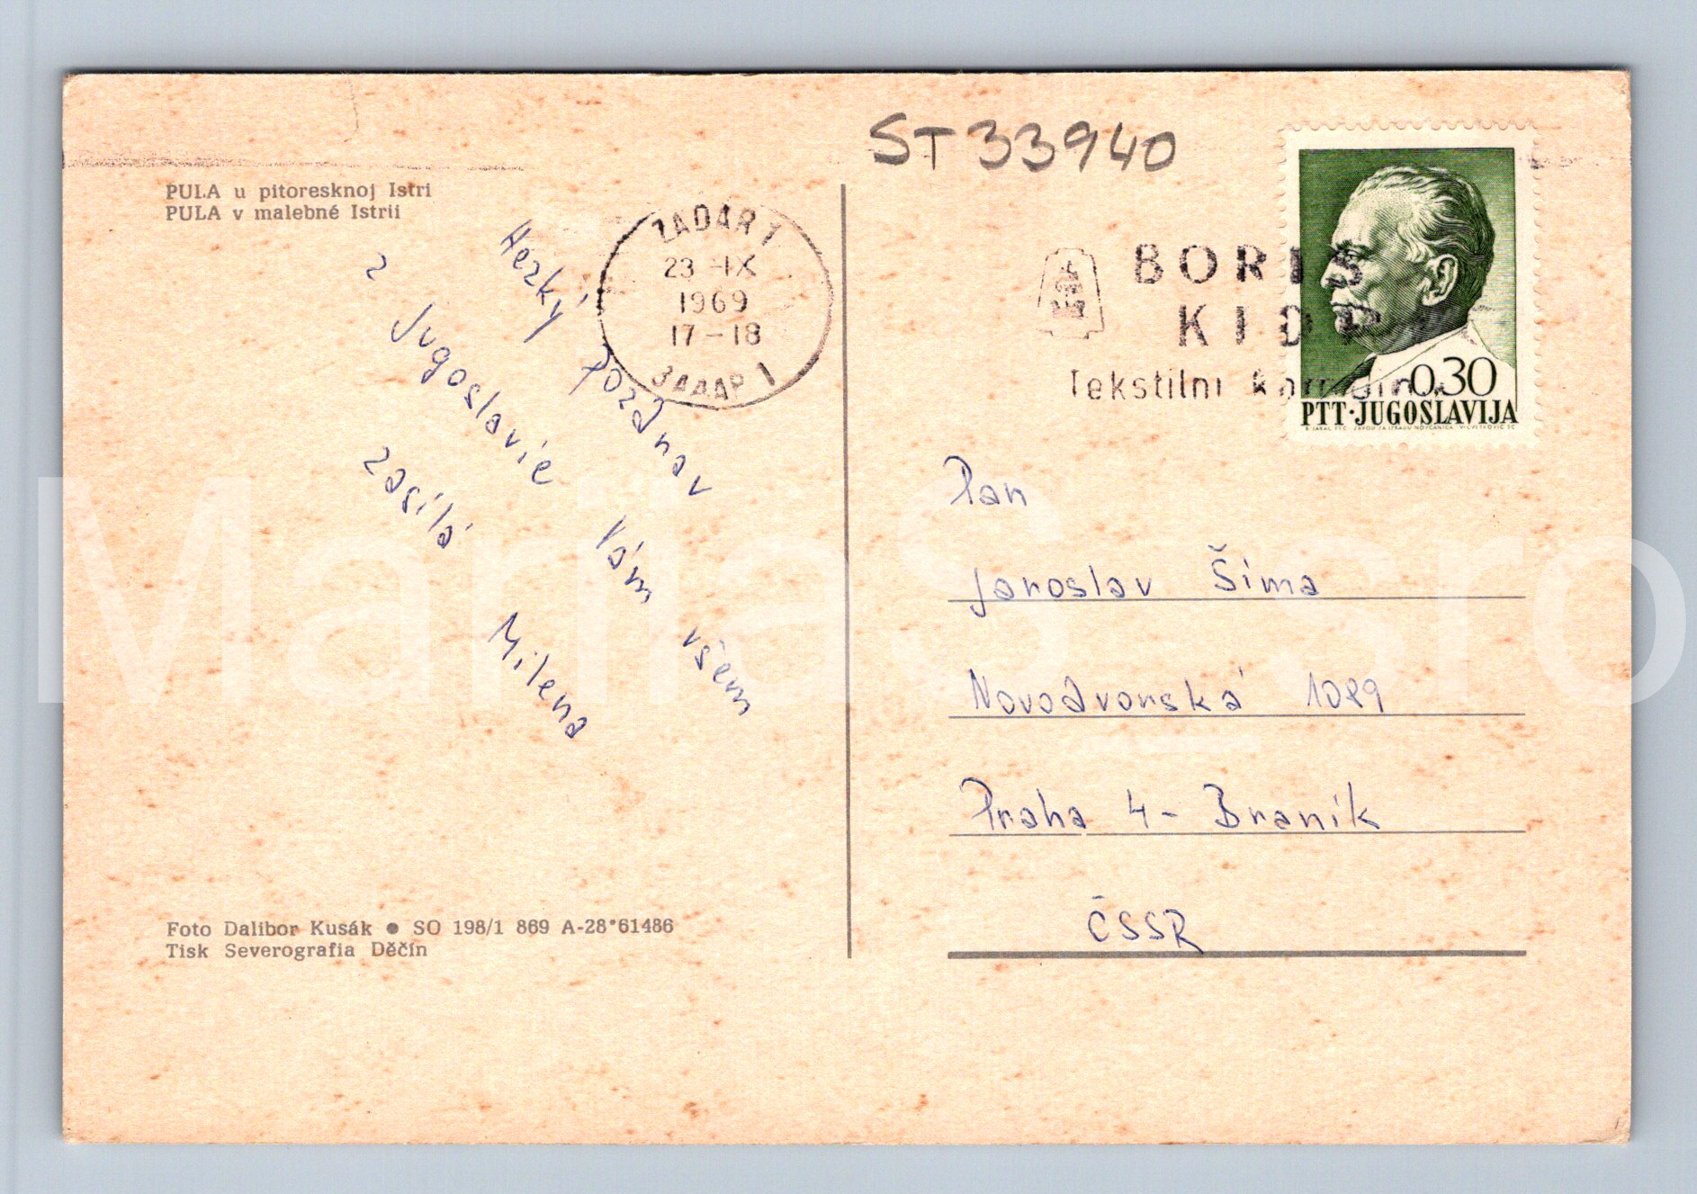 ST 33940
PULA u pitoresknoj Istri
PULA v malebné Istrii
ZADAR 1
23-IX
1969
17-18
ЗАДАР 1
BORIS
KIDR
Tekstilni
0,30
PTT·JUGOSLAVIJA
Hezký pozdrav
z Jugoslavie Vám všem
zasílá
Milena
Pan
Jaroslav Šíma
Novodvorská 1089
Praha 4 - Braník
ČSSR
Foto Dalibor Kusák ● SO 198/1 869 A-28*61486
Tisk Severografia Děčín